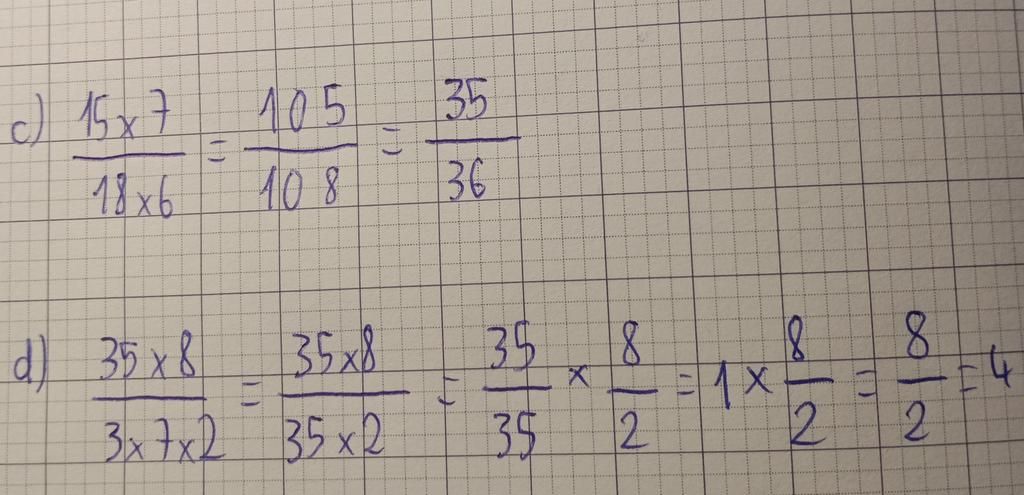 c) (15 x 7)/(18 x 6) = 105/108 = 35/36
d) (35 x 8)/(3 x 7 x 2) = (35 x 8)/(35 x 2) = 35/35 x 8/2 = 1 x 8/2 = 8/2 = 4